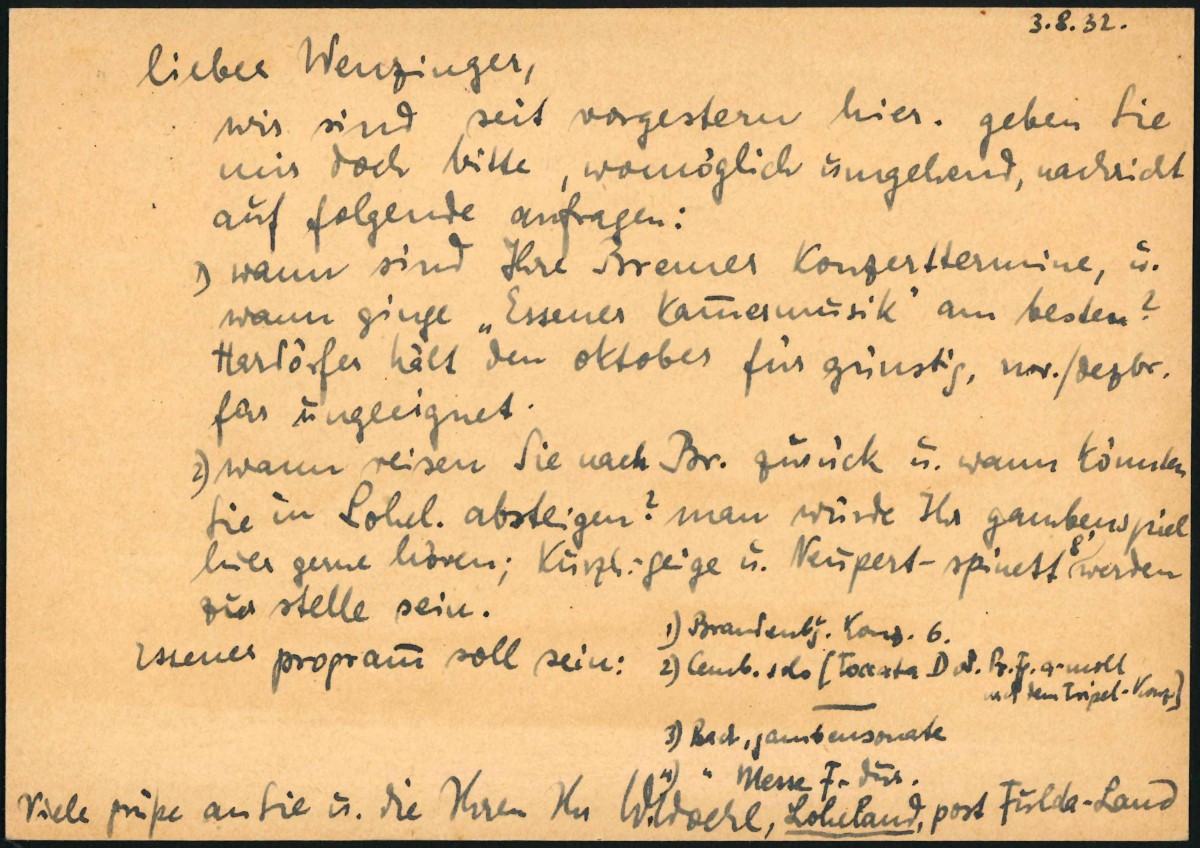 3.8.32.
lieber Wenzinger,
wir sind seit vorgestern hier. geben Sie
mir doch bitte, womöglich umgehend, nachricht
auf folgende anfragen:
1) wann sind Ihre Bremer Konzerttermine, u.
wann ginge „Essener Kam̅ermusik" am besten?
Hardörfer hält den oktober für günstig, nov./dezbr.
für ungeeignet.
2) wann reisen Sie nach Br. zurück u. wann könnten
Sie in Lohel. absteigen? man würde Ihr gambenspiel
hier gerne hören; Kurzh.-geige u. Neupert-spinett 8' werden
zur stelle sein.
Essener program̅ soll sein:
1) Brandenbg. Konz. 6.
2) Cemb. solo [Toccata D od. Pr. Fg. a-moll
aus dem Tripel-Konz.]
3) Bach, gambensonate
4) " Messe F-dur.
Viele grüße an Sie u. die Ihren Ihr, Loheland, post Fulda-Land